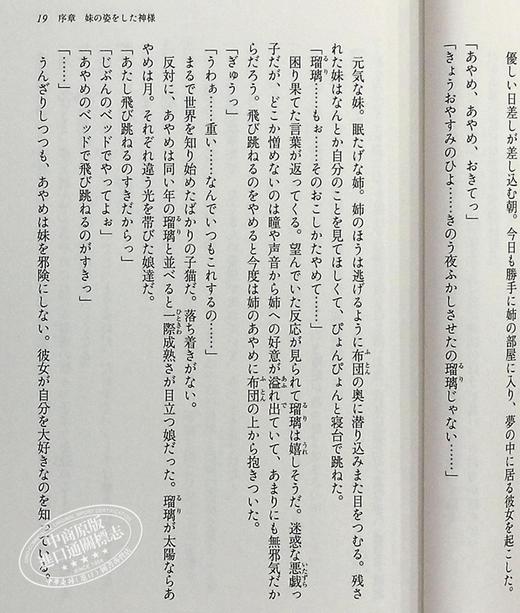 19　序章　妹の姿をした神様
優しい日差しが差し込む朝。今日も勝手に姉の部屋に入り、夢の中に居る彼女を起こした。
「あやめ、あやめ、おきてっ」
「きょうおやすみのひよ……きのう夜ふかしさせたの瑠璃じゃない……」
元気な妹。眠たげな姉。姉のほうは逃げるように布団の奥に潜り込みまた目をつむる。残さ
れた妹はなんとか自分のことを見てほしくて、ぴょんぴょんと寝台で跳ねた。
「瑠璃……もぉ……そのおこしかたやめて……」
困り果てた言葉が返ってくる。望んでいた反応が見られて瑠璃は嬉しそうだ。迷惑な悪戯っ
子だが、どこか憎めないのは瞳や声音から姉への好意が溢れ出ていて、あまりにも無邪気だか
らだろう。飛び跳ねるのをやめると今度は姉のあやめに布団の上から抱きついた。
「ぎゅうっ」
「うわぁ……重い……なんでいつもこれするの……」
まるで世界を知り始めたばかりの子猫だ。落ち着きがない。
反対に、あやめは同い年の瑠璃と並べると一際成熟さが目立つ娘だった。瑠璃が太陽ならあ
やめは月。それぞれ違う光を帯びた娘達だ。
「あたし飛び跳ねるのすきだからっ」
「じぶんのベッドでやってよぉ」
「あやめのベッドで飛び跳ねるのがすきっ」
「……」
うんざりしつつも、あやめは妹を邪険にしない。彼女が自分を大好きなのを知っている。
中商原版
進口通關標志